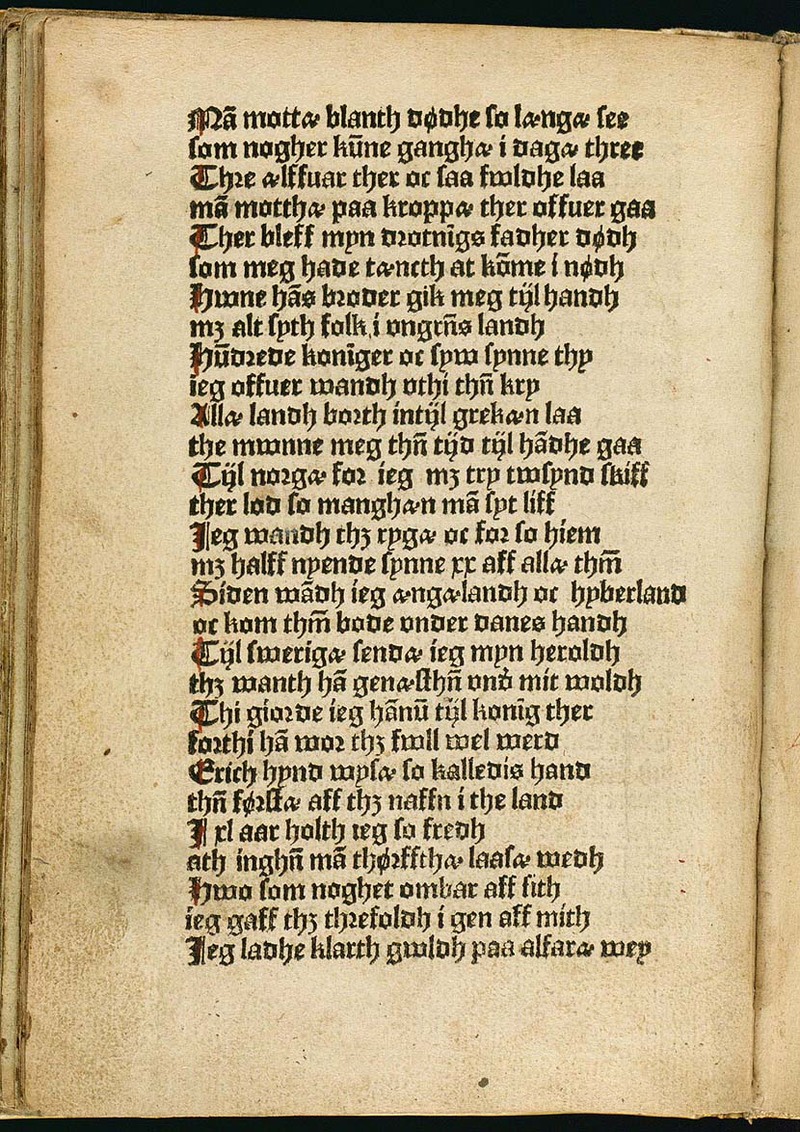 Mā mottæ blanth dødhe so længæ see
som nogher kūne ganghæ i dagæ three
Thre ælffuar ther oc saa fwldhe laa
mā motthæ paa kroppæ ther offuer gaa
Ther bleff myn drotnīgs fadher dødh
som meg hade tæncth at kōme i nødh
Hwne hās broder gik meg tijl handh
mꝫ alt syth folk i vngrn̄s landh
Hūdrede konīger oc syw synne thy
ieg offuer wandh vthi thn̄ kry
Allæ landh borth intijl grekæn laa
the mwnne meg thn̄ tijd tijl hādhe gaa
Tijl norgæ for ieg mꝫ try twsynd skiff
ther lod so manghæn mā syt liff
Jeg wandh thꝫ rygæ oc for so hiem
mꝫ halff nyende synne xx aff allæ thm̄
Siden wādh ieg ængælandh oc hyberland
oc kom thm̄ bode vnder danes handh
Tijl swerigæ sendæ ieg myn heroldh
thꝫ wanth hā genæsthn̄ vnd̄ mit woldh
Thi giorde ieg hānū tijl konīg ther
forthi hā wor thꝫ fwll wel werd
Erich hynd wysæ so kalledis hand
thn̄ førstæ aff thꝫ naffn i the land
J xl aar holth ieg so fredh
ath inghn̄ mā thørffthæ laasæ wedh
Hwo som noghet ombar aff sith
ieg gaff thꝫ threfoldh i gen aff mith
Jeg ladhe klarth gwldh paa alfaræ wey